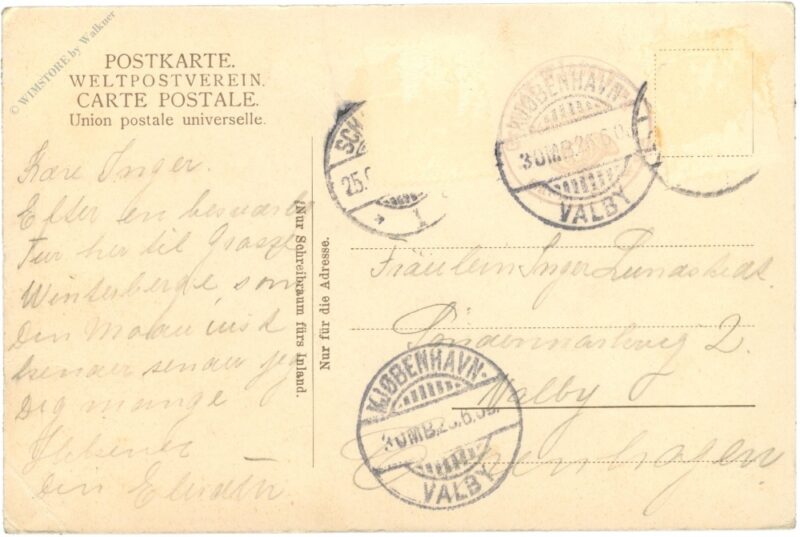 © WIMSTORE by Walkner
POSTKARTE.
WELTPOSTVEREIN.
CARTE POSTALE.
Union postale universelle.
Kære Inger.
Efter en besværlig
Tur her til
Winterberge, som
Din
kender sender jeg
Dig mange
Hilsener
din
(Nur Schreibraum fürs Inland.
Nur für die Adresse.
SCH
25.
* 1
KJØBENHAVN
3 OMB. 26.6.05.
VALBY
Fräulein Inger Lundstedt.
Søndermarksvej 2.
Valby
Copenhagen
KJØBENHAVN
3 OMB. 26.6.05.
VALBY